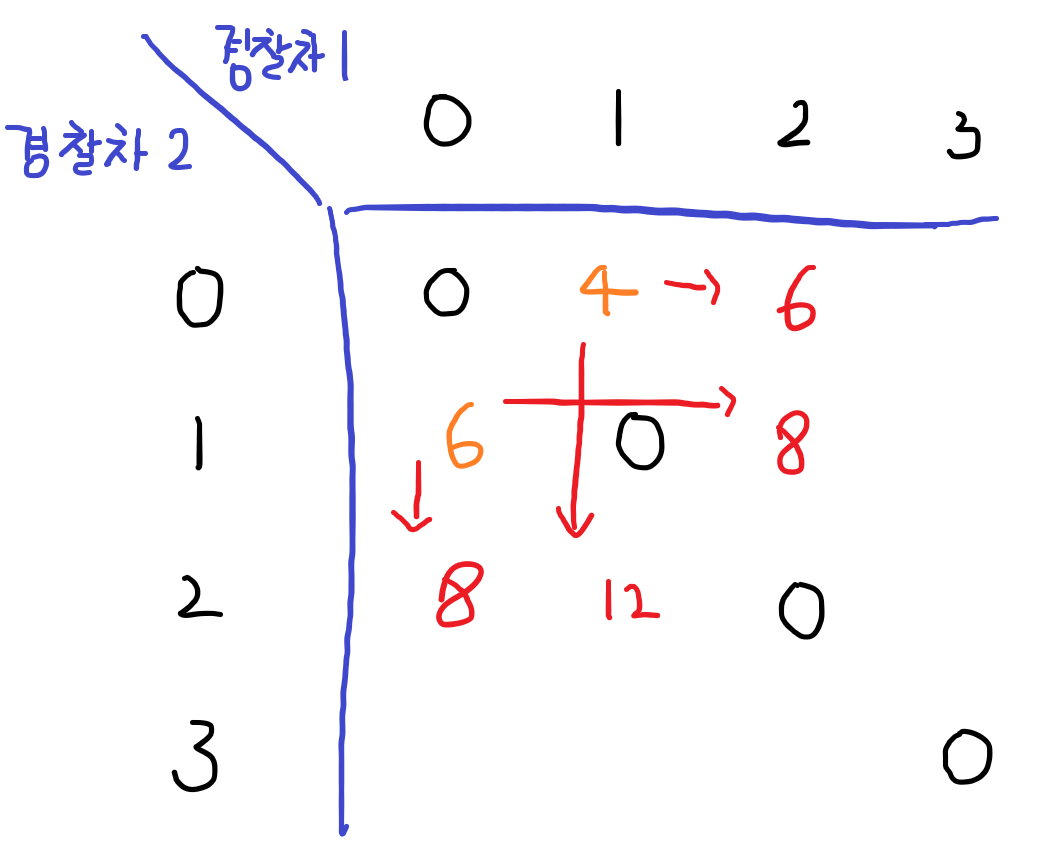 경찰차 1
경찰차 2
0 1 2 3
0 0 4 → 6
1 6 0 8
2 8 12 0
3 0